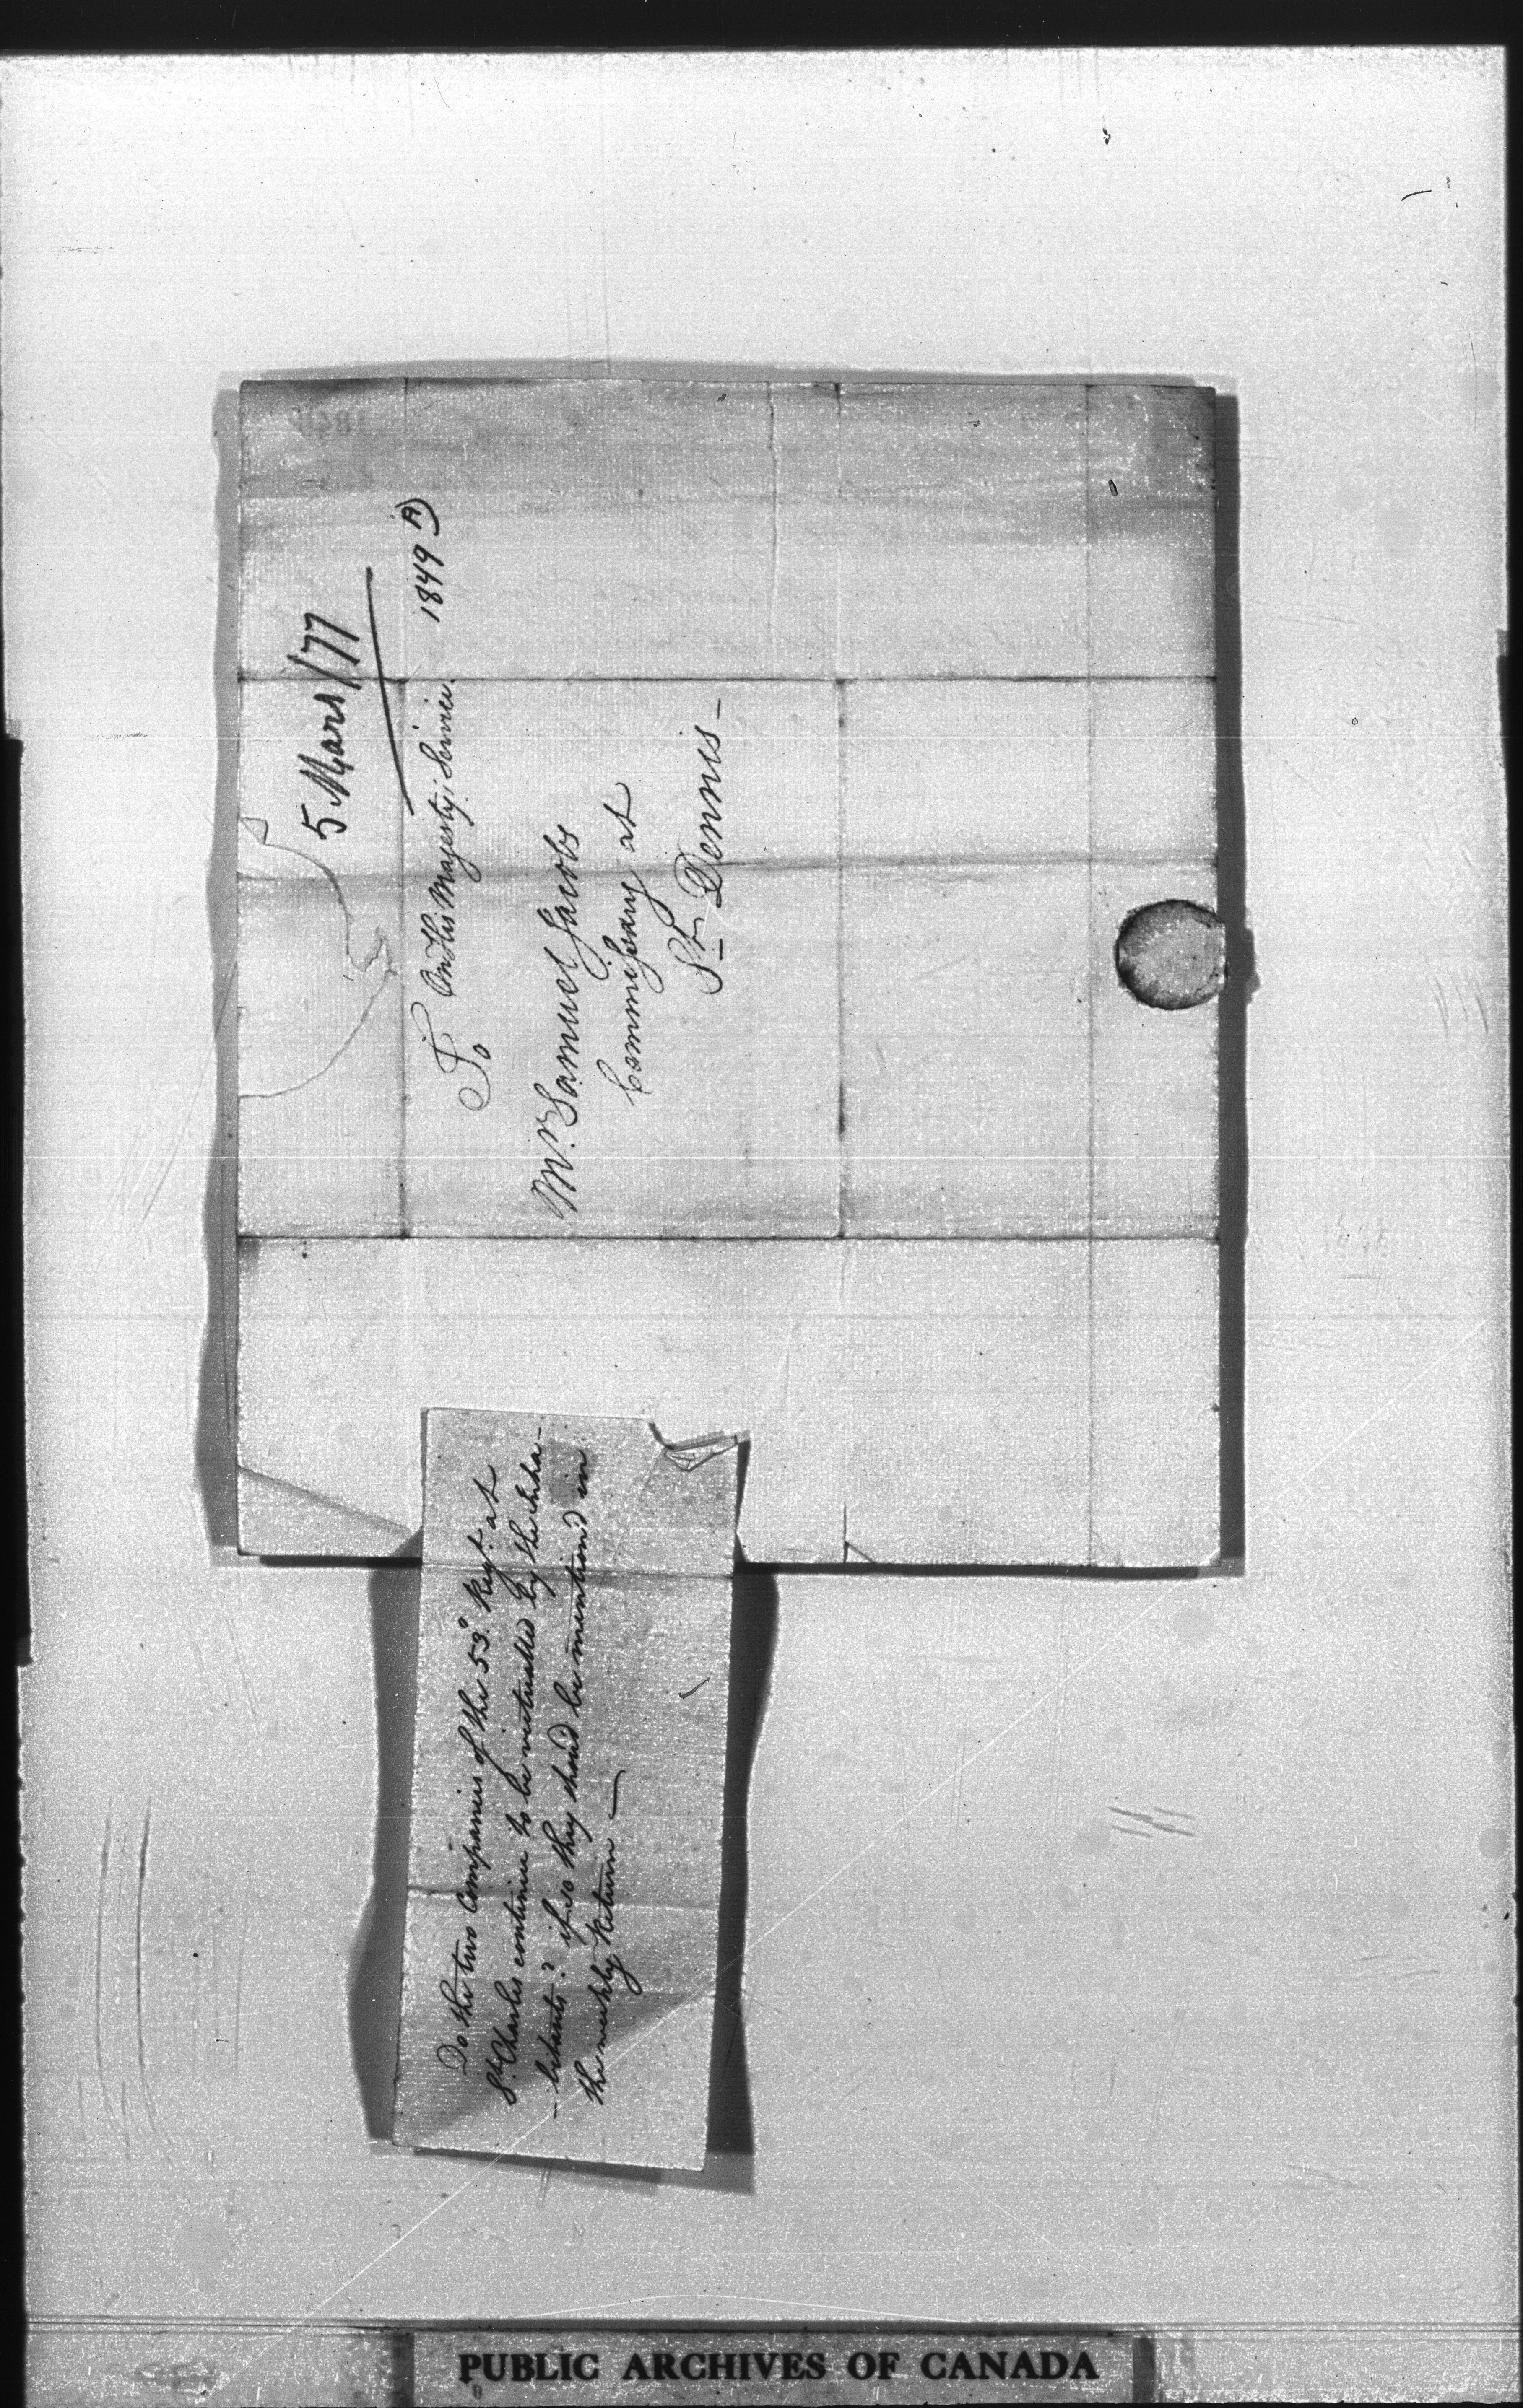 5 Mars /77
1849 A)
On His Majesty's Service.
To
Mr. Samuel Jacobs
Commissary at
St. Dennis -
Do the two Companies of the 53d. Regt. at
St. Charles continue to be victualled by the Inha-
-bitants? if so they shoud be mention'd in
the weekly Return —
PUBLIC ARCHIVES OF CANADA